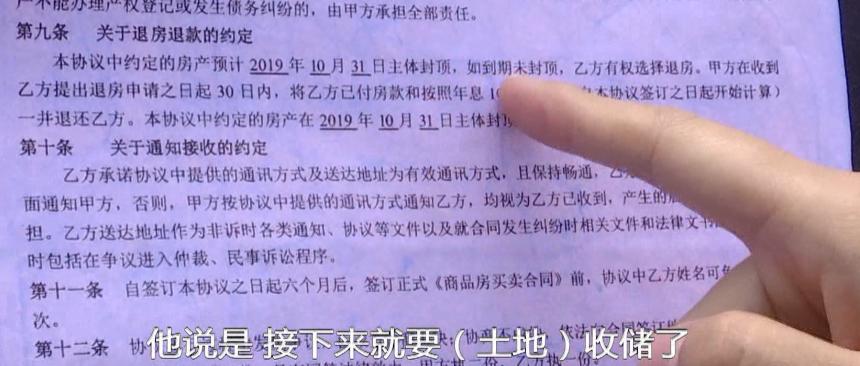 产不能办理产权登记或发生债务纠纷的，由甲方承担全部责任。
第九条 关于退房退款的约定
本协议中约定的房产预计 2019 年 10 月 31 日主体封顶，如到期未封顶，乙方有权选择退房。甲方在收到
乙方提出退房申请之日起 30 日内，将乙方已付房款和按照年息 本协议签订之日起开始计算）
一并退还乙方。本协议中约定的房产在 2019 年 10 月 31 日主体封
第十条 关于通知接收的约定
乙方承诺协议中提供的通讯方式及送达地址为有效通讯方式，且保持畅通，
面通知甲方，否则，甲方按协议中提供的通讯方式通知乙方，均视为乙方已收到，产生的
担。乙方送达地址作为非诉时各类通知、协议等文件以及就合同发生纠纷时相关文件和法律文
时包括在争议进入仲裁、民事诉讼程序。
第十一条 自签订本协议之日起六个月后，签订正式《商品房买卖合同》前，协议中乙方姓名可
次。
第十二条 协
他说是 接下来就要（土地）收储了